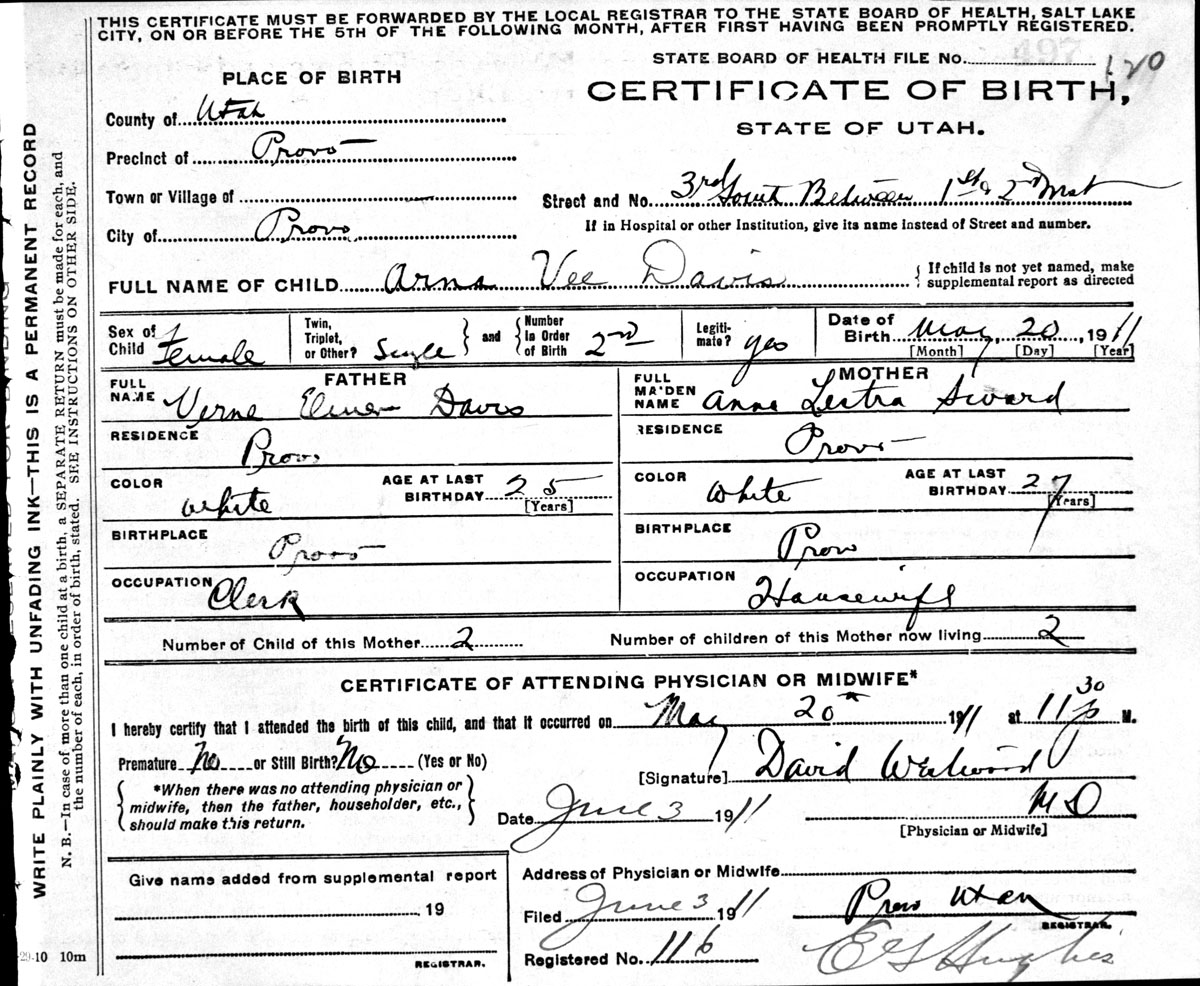 THIS CERTIFICATE MUST BE FORWARDED BY THE LOCAL REGISTRAR TO THE STATE BOARD OF HEALTH, SALT LAKE
CITY, ON OR BEFORE THE 5TH OF THE FOLLOWING MONTH, AFTER FIRST HAVING BEEN PROMPTLY REGISTERED.
STATE BOARD OF HEALTH FILE No. 497 120
PLACE OF BIRTH
CERTIFICATE OF BIRTH,
STATE OF UTAH.
County of Utah
Precinct of Provo
Town or Village of
Street and No. 3rd South Between 1st & 2nd West
City of Provo
If in Hospital or other Institution, give its name instead of Street and number.
FULL NAME OF CHILD Arna Vee Davis
If child is not yet named, make
supplemental report as directed
Sex of Child Female
Twin, Triplet, or Other? Single
and Number in Order of Birth 2nd
Legiti-mate? yes
Date of Birth May 20, 1911
[Month] [Day] [Year]
FATHER
FULL NAME Verne Elmer Davis
RESIDENCE Provo
COLOR white AGE AT LAST BIRTHDAY 25 [Years]
BIRTHPLACE Provo
OCCUPATION Clerk
MOTHER
FULL MAIDEN NAME Anna Sward
RESIDENCE Provo
COLOR White AGE AT LAST BIRTHDAY 27 [Years]
BIRTHPLACE Provo
OCCUPATION Housewife
Number of Child of this Mother 2 Number of children of this Mother now living 2
CERTIFICATE OF ATTENDING PHYSICIAN OR MIDWIFE*
I hereby certify that I attended the birth of this child, and that it occurred on May 20th 1911 at 11 30 P M.
Premature No or Still Birth? No (Yes or No)
[Signature] David Westwood
*When there was no attending physician or
midwife, then the father, householder, etc.,
should make this return.
Date June 3 1911 M D
[Physician or Midwife]
Give name added from supplemental report
19
REGISTRAR.
Address of Physician or Midwife
Filed June 3 1911 Provo Utah
REGISTRAR.
Registered No. 116 E G Hughes
29-10 10m
WRITE PLAINLY WITH UNFADING INK—THIS IS A PERMANENT RECORD
N. B.—In case of more than one child at a birth, a SEPARATE RETURN must be made for each, and
the number of each, in order of birth, stated. SEE INSTRUCTIONS ON OTHER SIDE.